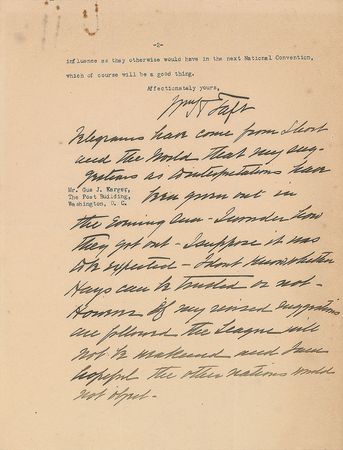 -2-
influence as they otherwise would have in the next National Convention,
which of course will be a good thing.
Affectionately yours,
Wm H Taft
Telegrams have come from Short
and the World that my sug-
gestions as to interpretations have
Mr. Gus J. Karger,
The Post Building,
Washington, D. C.
been given out in
the Evening Sun - I wonder how
they got out - I suppose it was
to be expected - I dont know whether
Hays can be trusted or not -
However if my revised suggestions
are followed the League will
not be weakened and I am
hopeful the other nations would
not object -